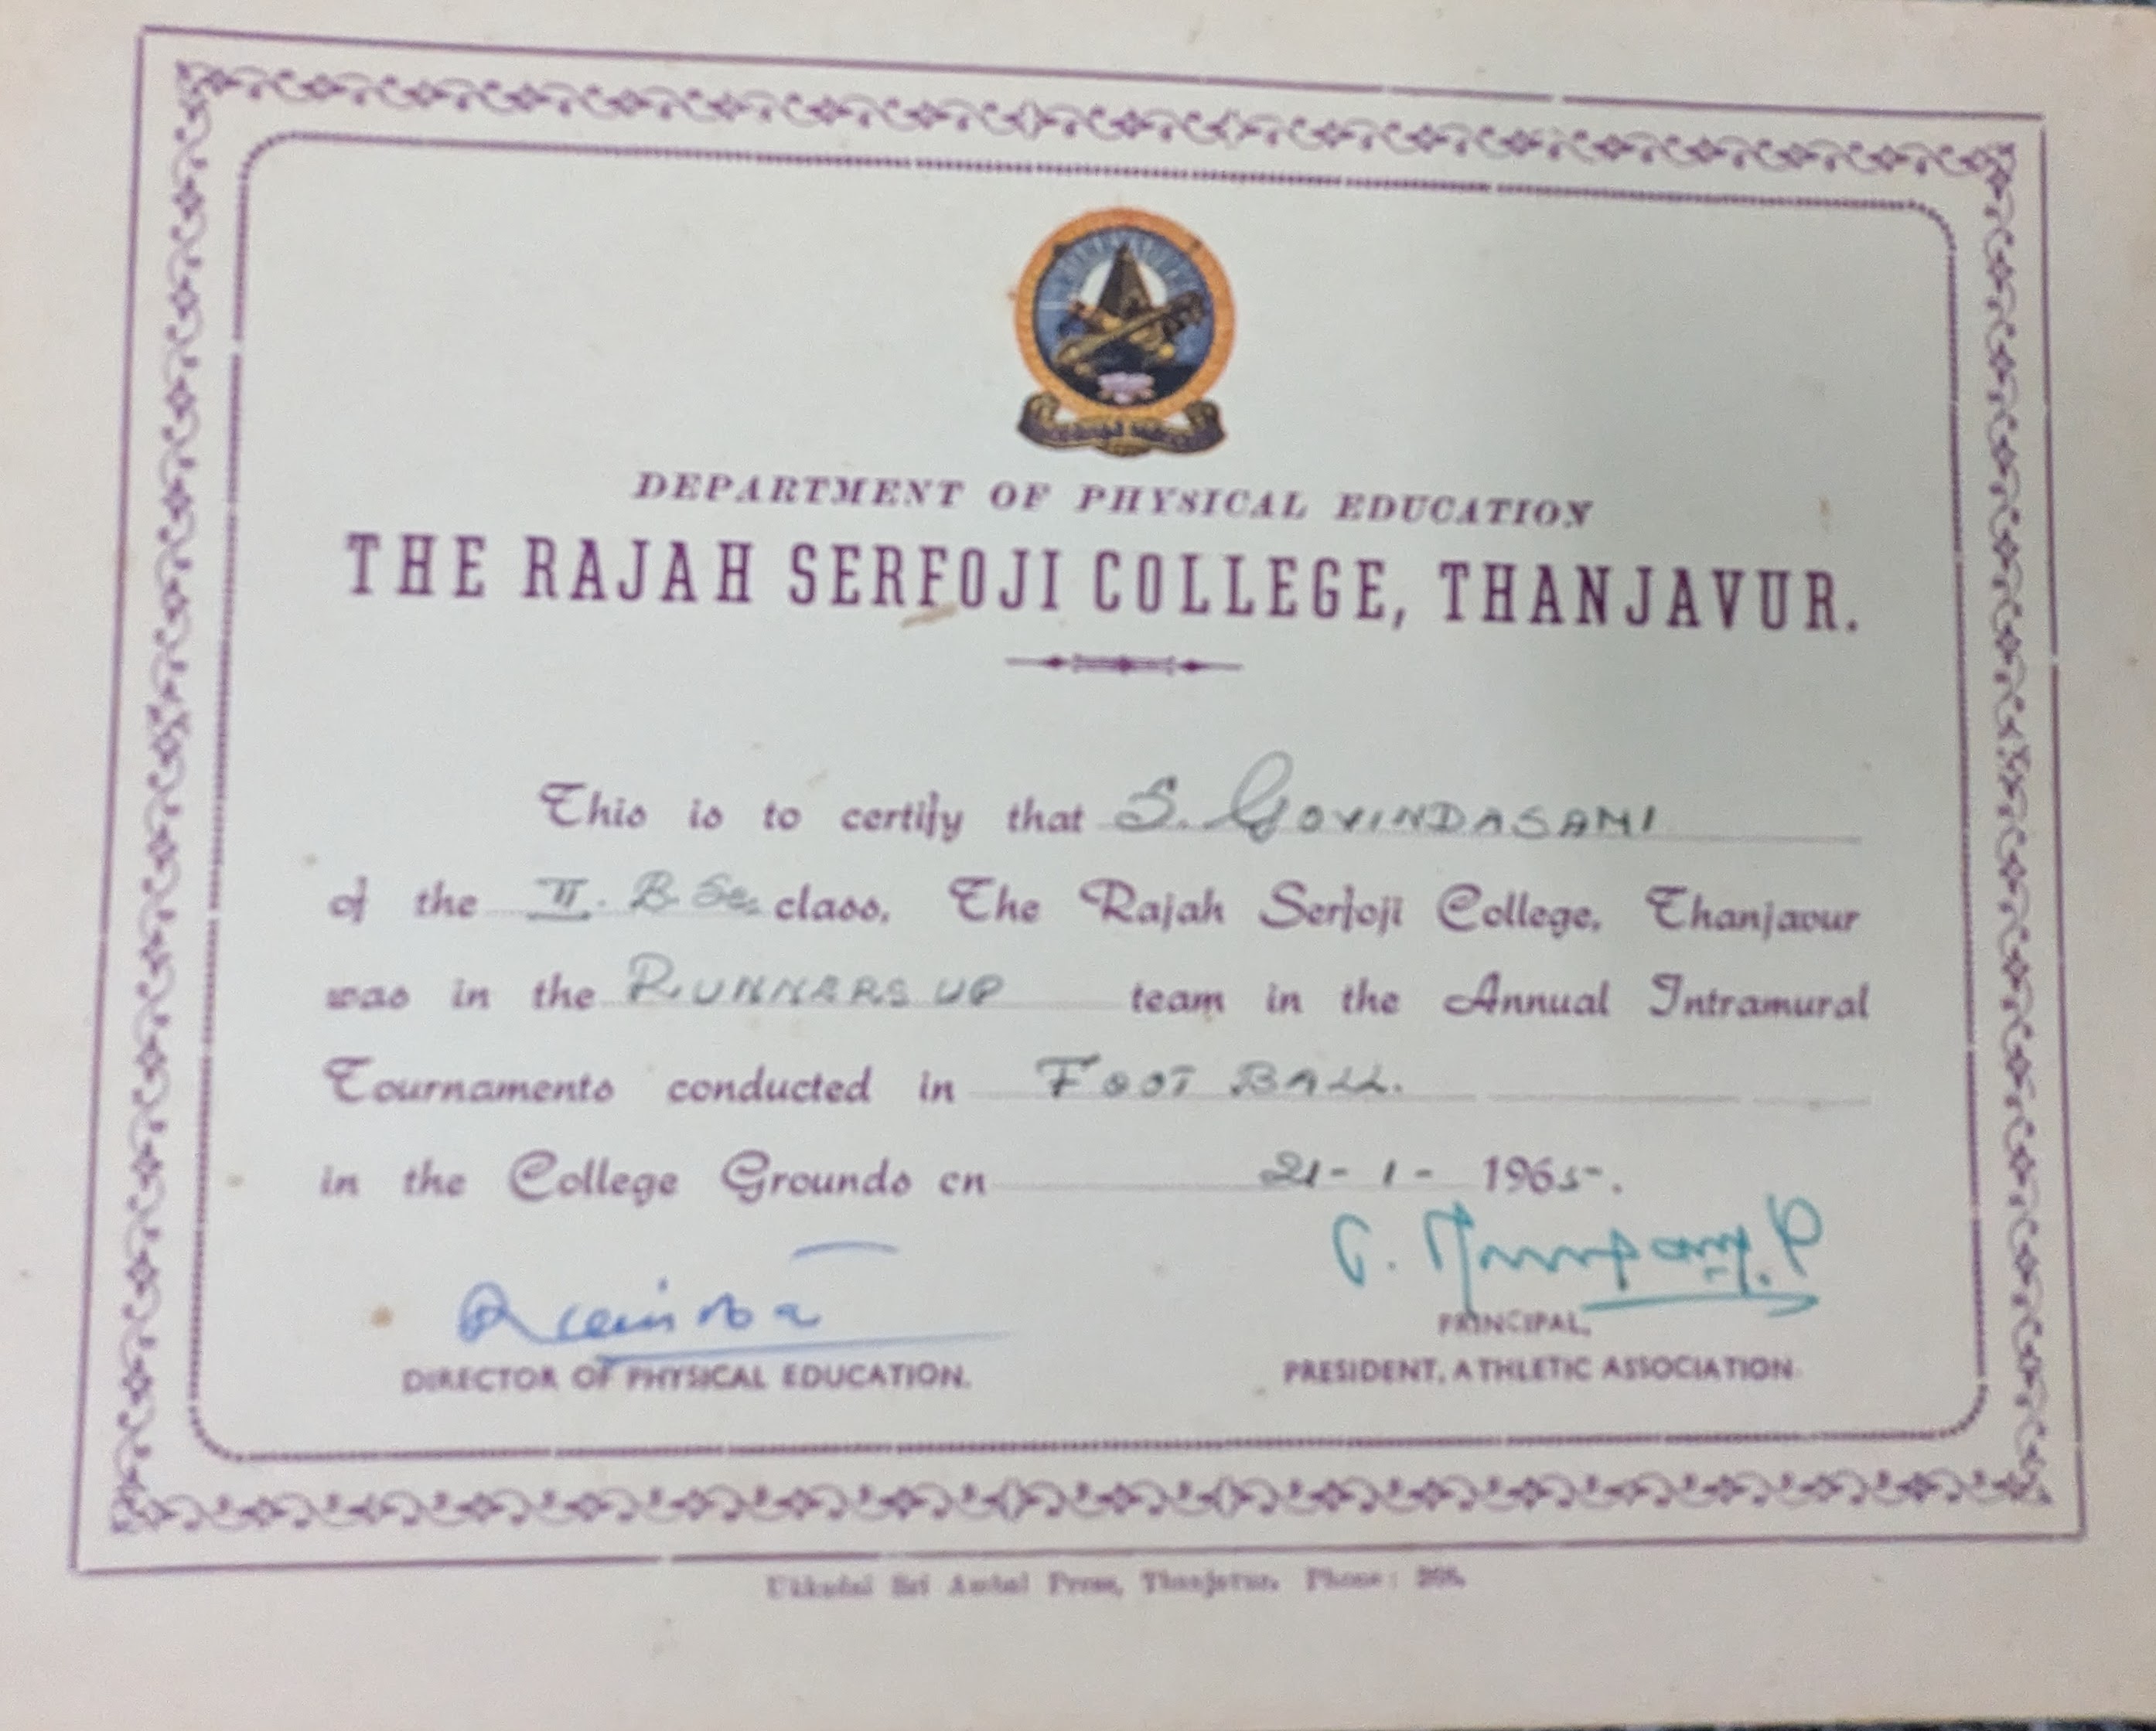 DEPARTMENT OF PHYSICAL EDUCATION
THE RAJAH SERFOJI COLLEGE, THANJAVUR.
This is to certify that S. GOVINDASAMI
of the II. B Sc. class, The Rajah Serfoji College, Thanjavur
was in the RUNNERS UP team in the Annual Intramural
Tournaments conducted in FOOT BALL.
in the College Grounds on 21-1- 1965.
DIRECTOR OF PHYSICAL EDUCATION.
PRINCIPAL,
PRESIDENT, ATHLETIC ASSOCIATION.
Sri Press, Thanjavur. Phone: